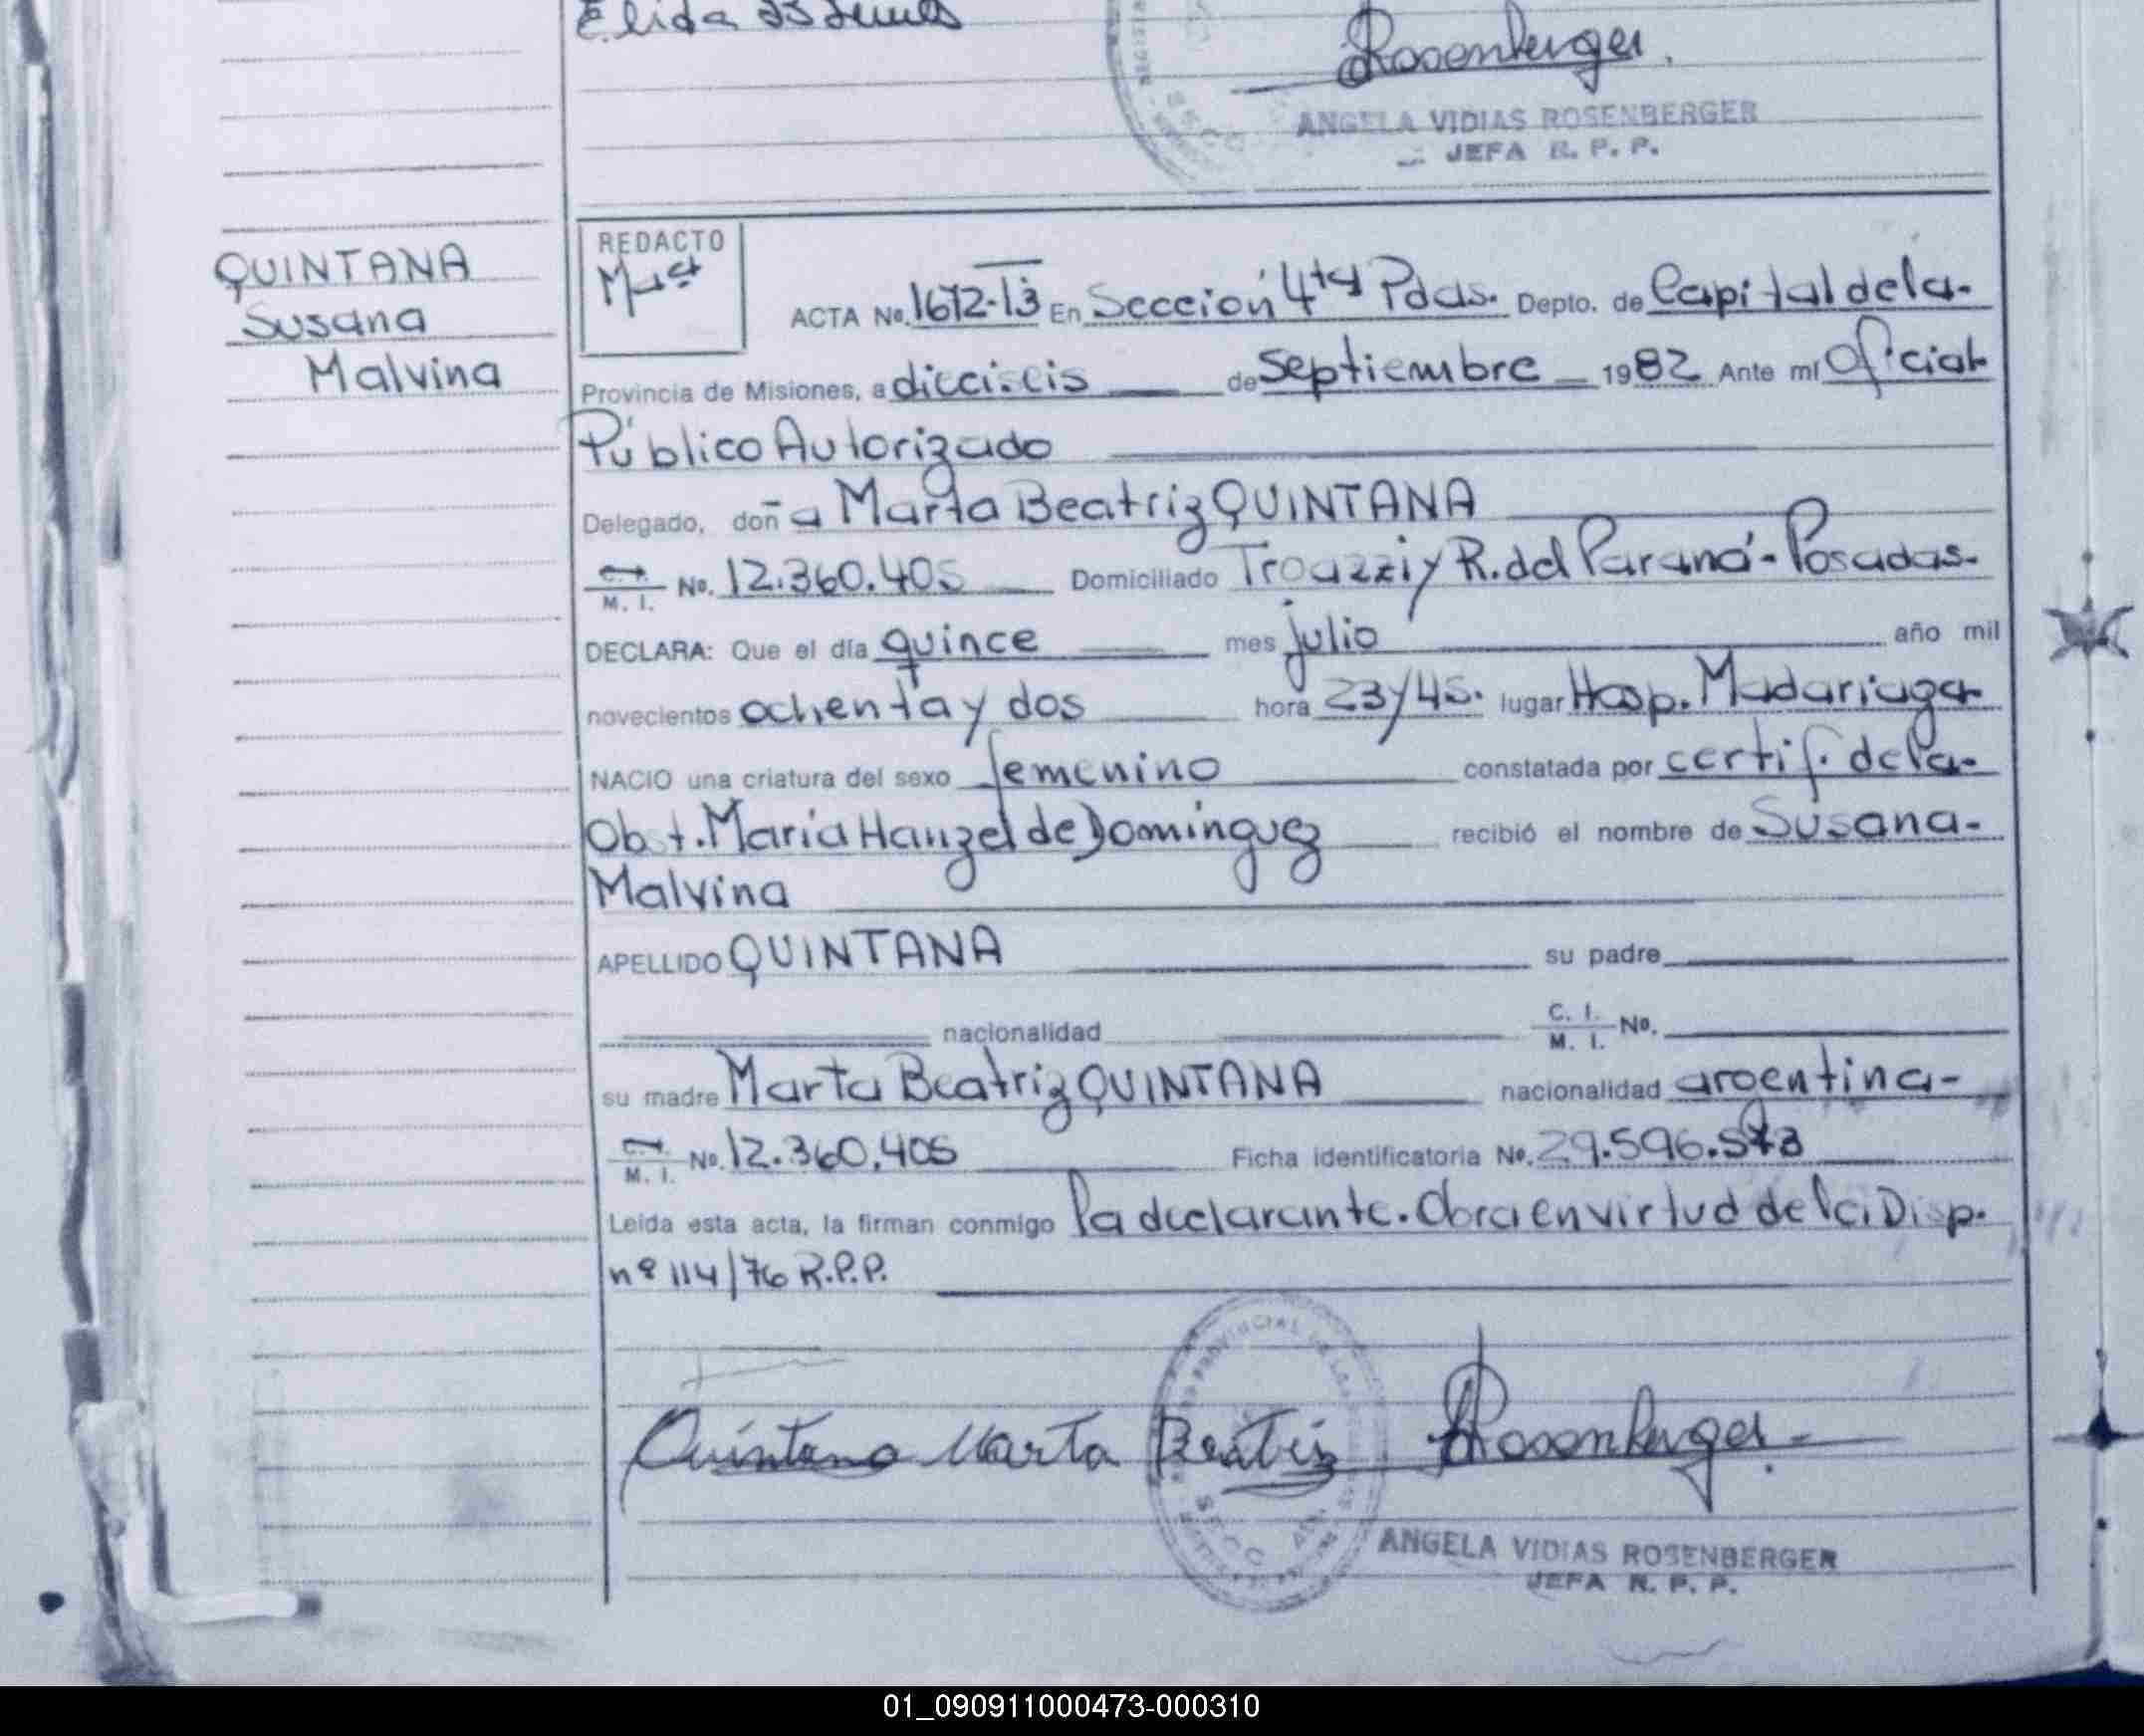 Elida
Rosenberger
ANGELA VIDIAS ROSENBERGER
JEFA R. P. P.
QUINTANA
Susana
Malvina
REDACTO
ACTA No. 1672-13 En Sección 4ta Pdas. Depto. de Capital de la-
Provincia de Misiones, a dieciseis de Septiembre 1982 Ante mí Oficial
Público Autorizado
Delegado, doña Marta Beatriz QUINTANA
C. I. M. I. No. 12.360.405 Domiciliado y R. del Paraná - Posadas.
DECLARA: Que el día quince mes julio año mil
novecientos ochenta y dos hora 23/45. lugar Hosp. Madariaga
NACIO una criatura del sexo femenino constatada por certif. de la-
Obst. Maria Hanzel de Dominguez recibió el nombre de Susana-
Malvina
APELLIDO QUINTANA su padre
nacionalidad C. I. M. I. No.
su madre Marta Beatriz QUINTANA nacionalidad argentina-
C. I. M. I. No. 12.360.405 Ficha identificatoria No. 29.596.573
Leida esta acta, la firman conmigo la declarante. Obra en virtud de la Disp.
nº 114/76 R.P.P.
Quintana Marta Beatriz Rosenberger
PROVINCIAL DE LAS
SECC. 4ta
ANGELA VIDIAS ROSENBERGER
JEFA R. P. P.
01_090911000473-000310